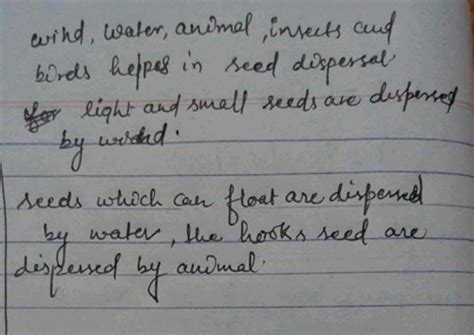 wind, water, animal, insects and
birds helpes in seed dispersal
light and small seeds are dispersed
by wind.
seeds which can float are dispersed
by water, the hooks seed are
dispersed by animal.